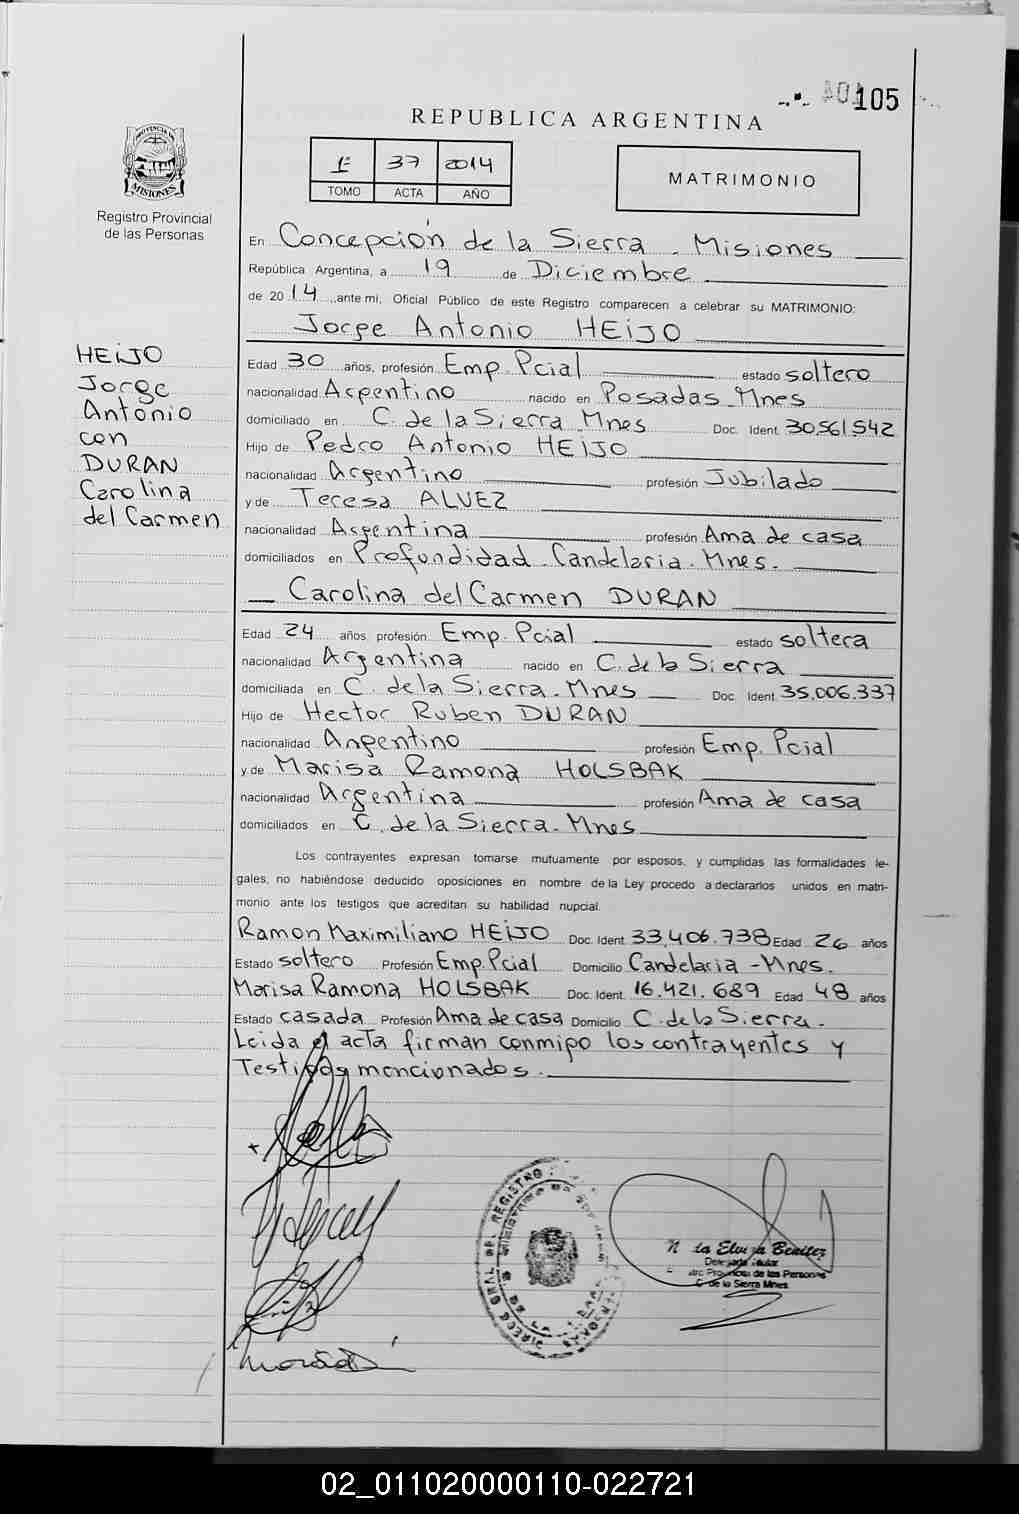 105
REPUBLICA ARGENTINA
PROVINCIA DE
MISIONES
Registro Provincial
de las Personas
1º 37 2014
TOMO ACTA AÑO
MATRIMONIO
En Concepción de la Sierra - Misiones
República Argentina, a 19 de Diciembre
de 2014, ante mi, Oficial Público de este Registro comparecen a celebrar su MATRIMONIO:
Jorge Antonio HEIJO
HEIJO
Jorge
Antonio
con
DURAN
Carolina
del Carmen
Edad 30 años, profesión Emp. Pcial estado soltero
nacionalidad Argentino nacido en Posadas Mnes
domiciliado en C. de la Sierra Mnes Doc. Ident. 30.561.542
Hijo de Pedro Antonio HEIJO
nacionalidad Argentino profesión Jubilado
y de Teresa ALVEZ
nacionalidad Argentina profesión Ama de casa
domiciliados en Profundidad - Candelaria - Mnes.
Carolina del Carmen DURAN
Edad 24 años, profesión Emp. Pcial estado soltera
nacionalidad Argentina nacido en C. de la Sierra
domiciliada en C. de la Sierra - Mnes Doc. Ident. 35.006.337
Hijo de Hector Ruben DURAN
nacionalidad Argentino profesión Emp. Pcial
y de Marisa Ramona HOLSBAK
nacionalidad Argentina profesión Ama de casa
domiciliados en C. de la Sierra - Mnes
Los contrayentes expresan tomarse mutuamente por esposos, y cumplidas las formalidades le-
gales, no habiéndose deducido oposiciones en nombre de la Ley procedo a declararlos unidos en matri-
monio ante los testigos que acreditan su habilidad nupcial.
Ramon Maximiliano HEIJO Doc. Ident. 33.406.738 Edad 26 años
Estado soltero Profesión Emp. Pcial Domicilio Candelaria - Mnes.
Marisa Ramona HOLSBAK Doc. Ident. 16.421.689 Edad 48 años
Estado casada Profesión Ama de casa Domicilio C. de la Sierra -
Leida el acta firman conmigo los contrayentes y
Testigos mencionados.
Elvira Benitez
Delegada Titular
de las Personas
C. de la Sierra Mnes
02_011020000110-022721